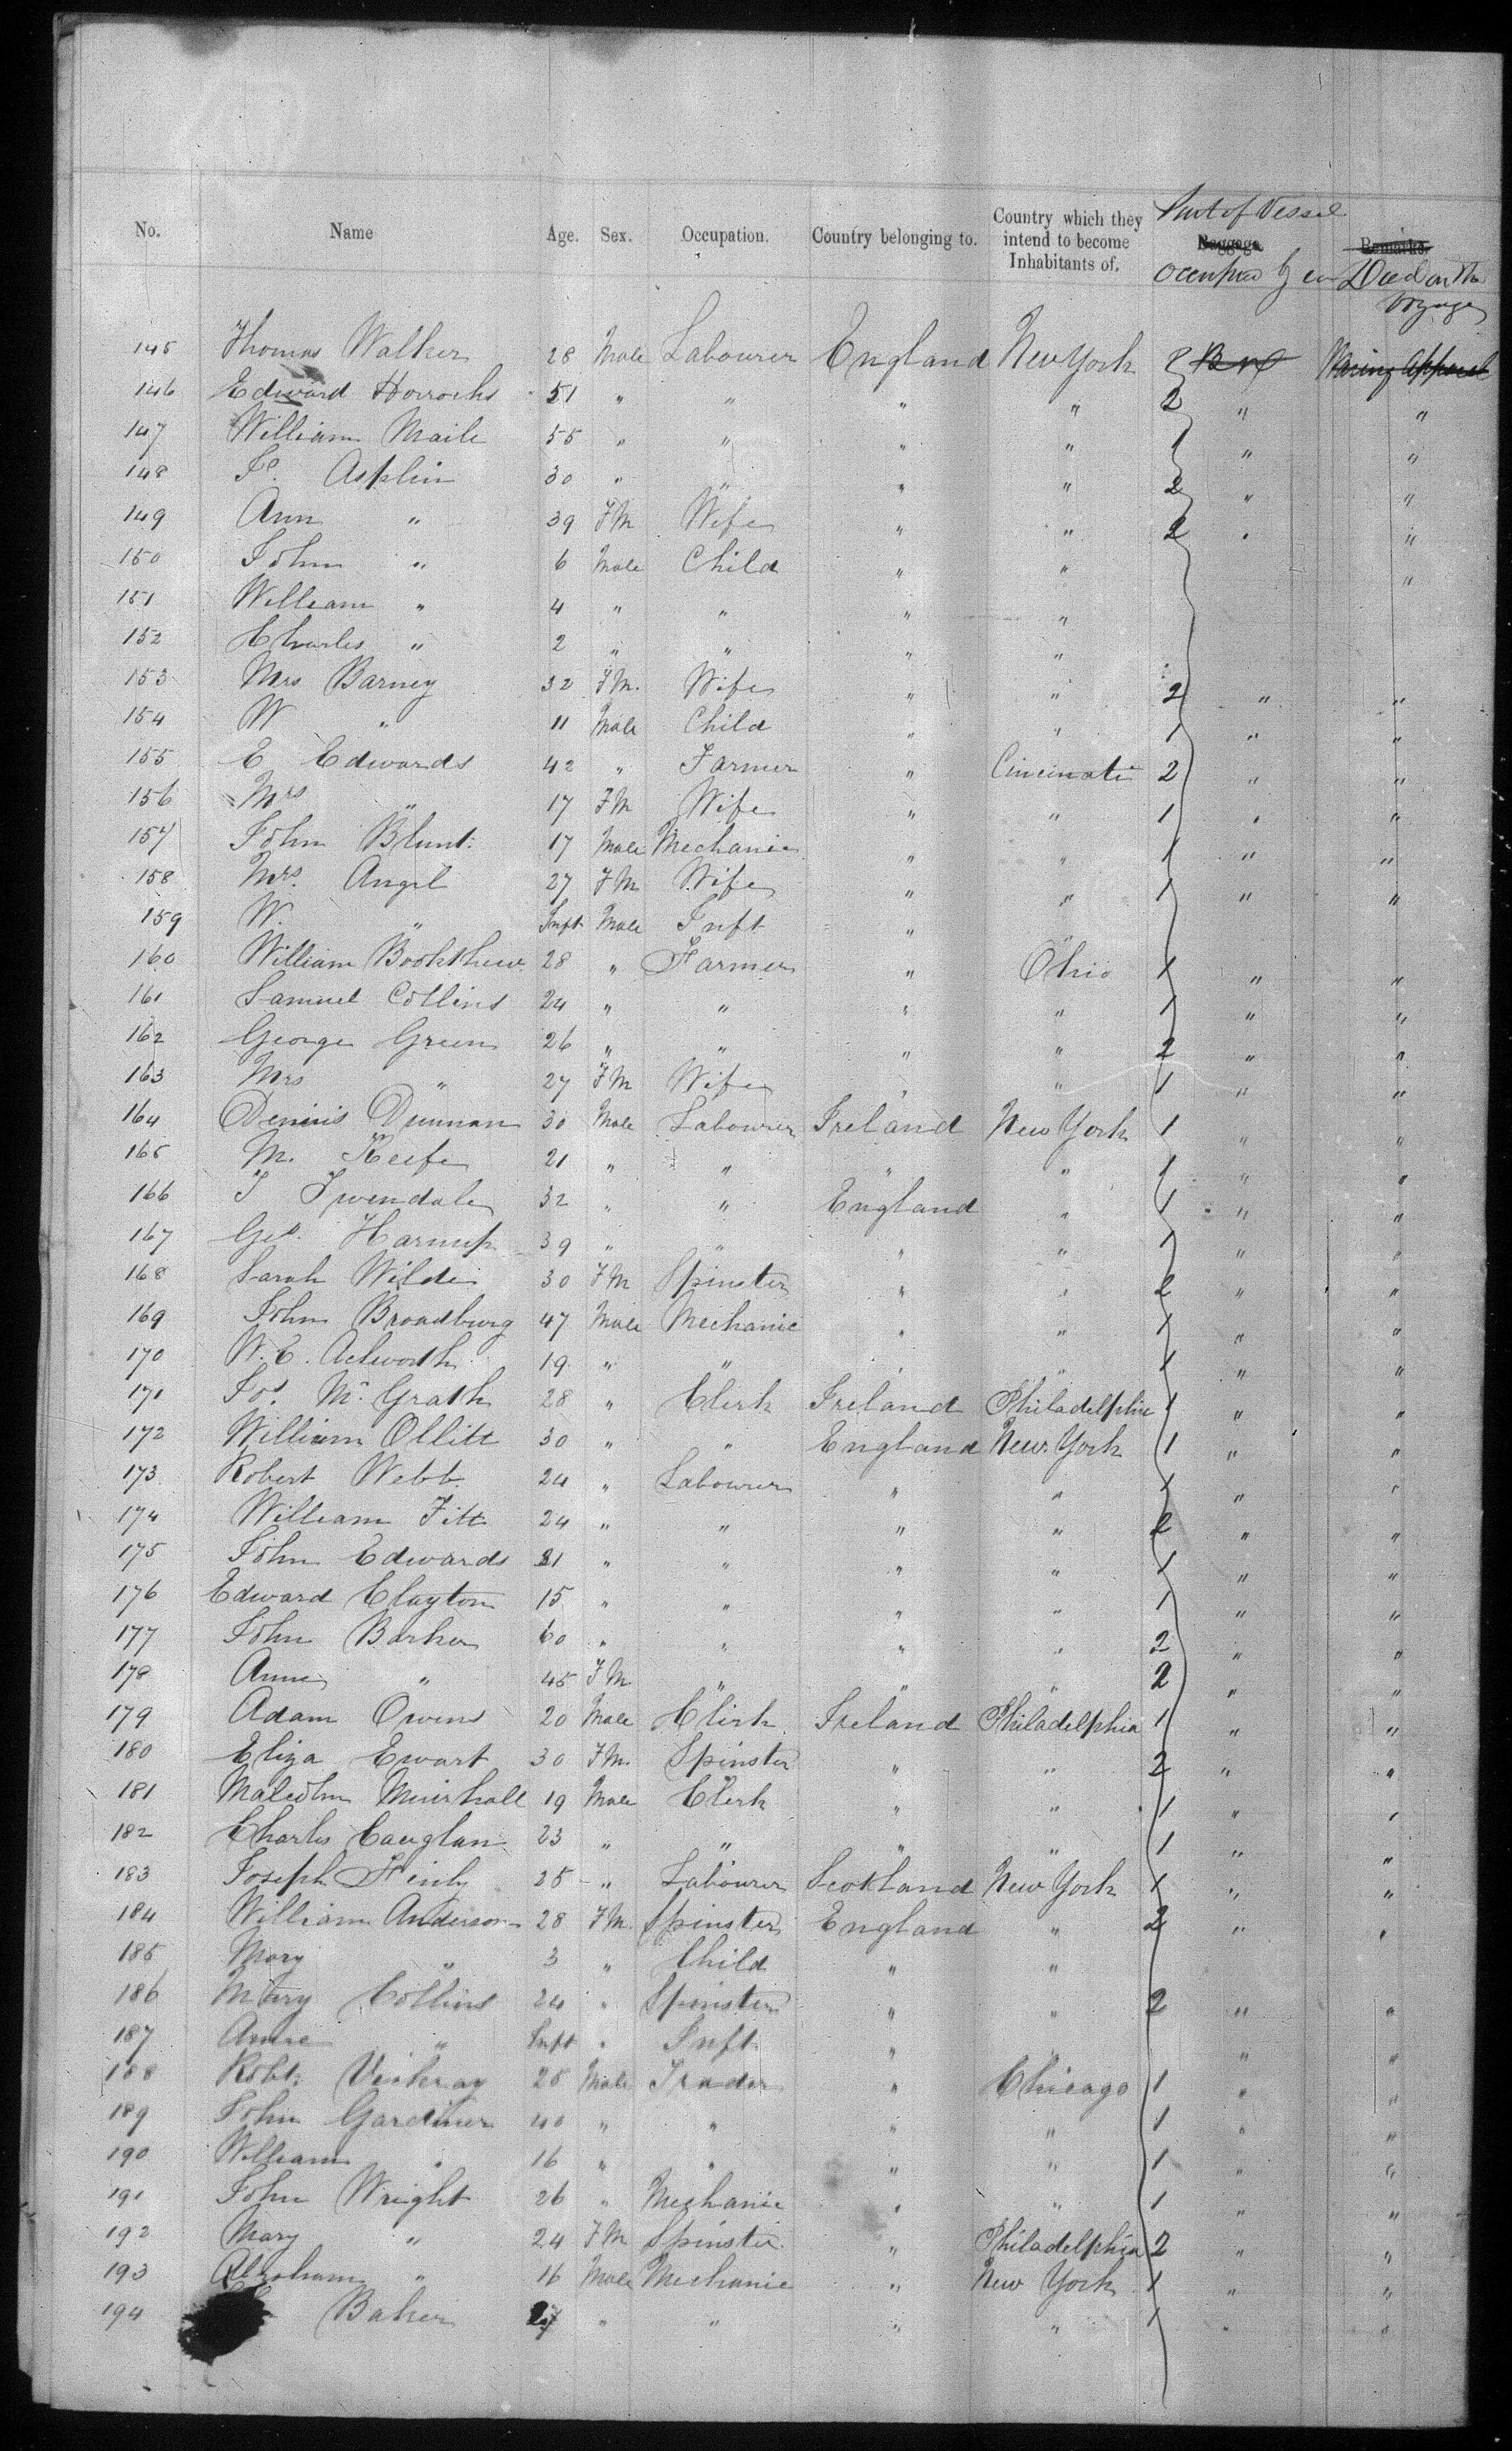 No. Name Age. Sex. Occupation. Country belonging to. Country which they intend to become Inhabitants of. Part of Vessel Baggage occupied by Remarks. Died on the Voyage
145 Thomas Walker 28 Male Labourer England New York 2 Waring Apparel
146 Edward Horrocks 51 " " " " 2 " "
147 William Maile 55 " " " " 1 " "
148 Asplin 30 " " " " 2 " "
149 Ann " 39 FM Wife " " 2 " "
150 John " 6 Male Child " " "
151 William " 4 " " " "
152 Charles " 2 " " " "
153 Mrs Barney 32 FM. Wife " " 2 " "
154 W " 11 Male Child " " 1 " "
155 E Edwards 42 " Farmer " Cincinati 2 " "
156 Mrs " 17 FM Wife " " 1 " "
157 John Blunt. 17 Male Mechanic " " 1 " "
158 Mrs. Angel 27 FM Wife " " 1 " "
159 W. " Inft Male Inft " "
160 William 28 " Farmer " Ohio 1 " "
161 Samuel Collins 24 " " " " 1 " "
162 George Green 26 " " " " 2 " "
163 Mrs " 27 FM Wife " " 1 " "
164 Dennis Dunnan 30 Male Labourer Ireland New York 1 " "
165 M. Keefe 21 " " " " 1 " "
166 32 " " England " 1 " "
167 Geo. Harnup 39 " " " " 1 " "
168 Sarah Wilde 30 FM Spinster " " 2 " "
169 John Broadburg 47 Male Mechanic " " 1 " "
170 W. E. Acworth 19 " " " " 1 " "
171 Jos. Mc Grath 28 " Clerk Ireland Philadelphia 1 " "
172 William Ollitt 30 " " England New York 1 " "
173 Robert Webb 24 " Labourer " " 1 " "
174 William Fitt 24 " " " " 2 " "
175 John Edwards 21 " " " " 1 " "
176 Edward Clayton 15 " " " " 1 " "
177 John Barker 60 " " " " 2 " "
178 Anne " 45 FM " " " 2 " "
179 Adam Owens 20 Male Clerk Ireland Philadelphia 1 " "
180 Eliza Ewart 30 FM. Spinster " " 2 " "
181 Malcolm Muirhall 19 Male Clerk " " 1 " "
182 Charles Cauglan 23 " " " " 1 " "
183 Joseph 25 " Labourer Scotland New York 1 " "
184 William Anderson 28 FM. Spinster England " 2 " "
185 Mary " 3 " Child " "
186 Mary Collins 24 " Spinster " " 2 " "
187 Anne " Inft " Inft " " "
188 Robt. Vickray 25 Male Trader " Chicago 1 " "
189 John Gardiner 40 " " " " 1 " "
190 William " 16 " " " " 1 " "
191 John Wright 26 " Mechanic " " 1 " "
192 Mary " 24 FM Spinster " Philadelphia 2 " "
193 Abraham " 16 Male Mechanic " New York 1 " "
194 Baker 27 " " " " 1 " "